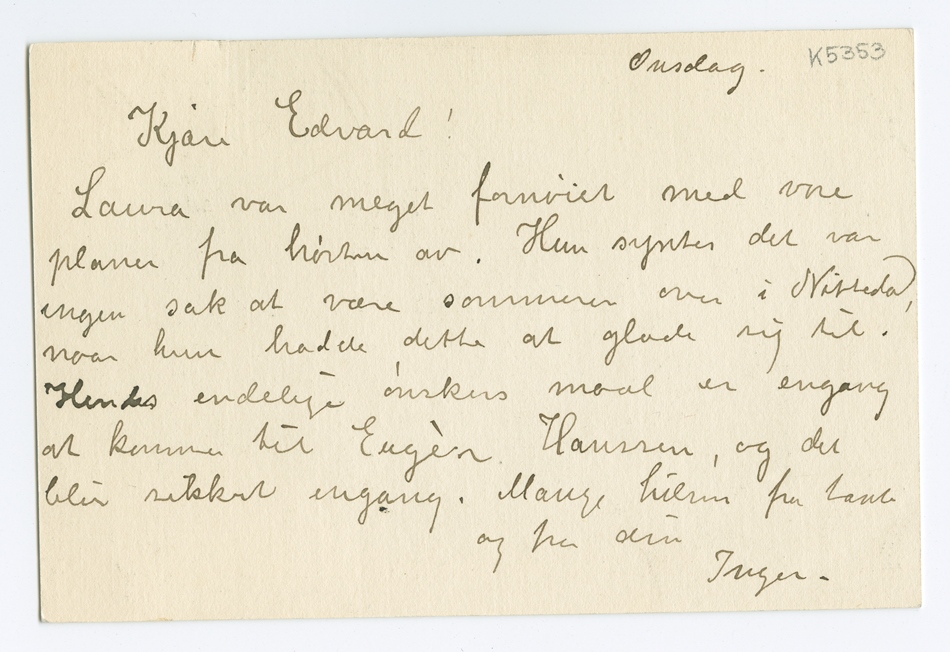 Onsdag. K5353
Kjære Edvard!
Laura var meget fornøiet med vore
planer fra høsten av. Hun syntes det var
ingen sak at være sommeren over i Nittedal,
naar hun hadde dette at glæde sig til.
Hendes endelige ønskers maal er engang
at komme til Eugèn Hanssen, og det
blir sikkert engang. Mange hilsner fra tante
og fra din
Inger.